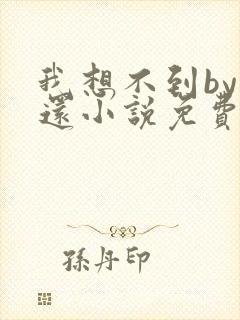 我想不到by
還小說免費
孫丹印